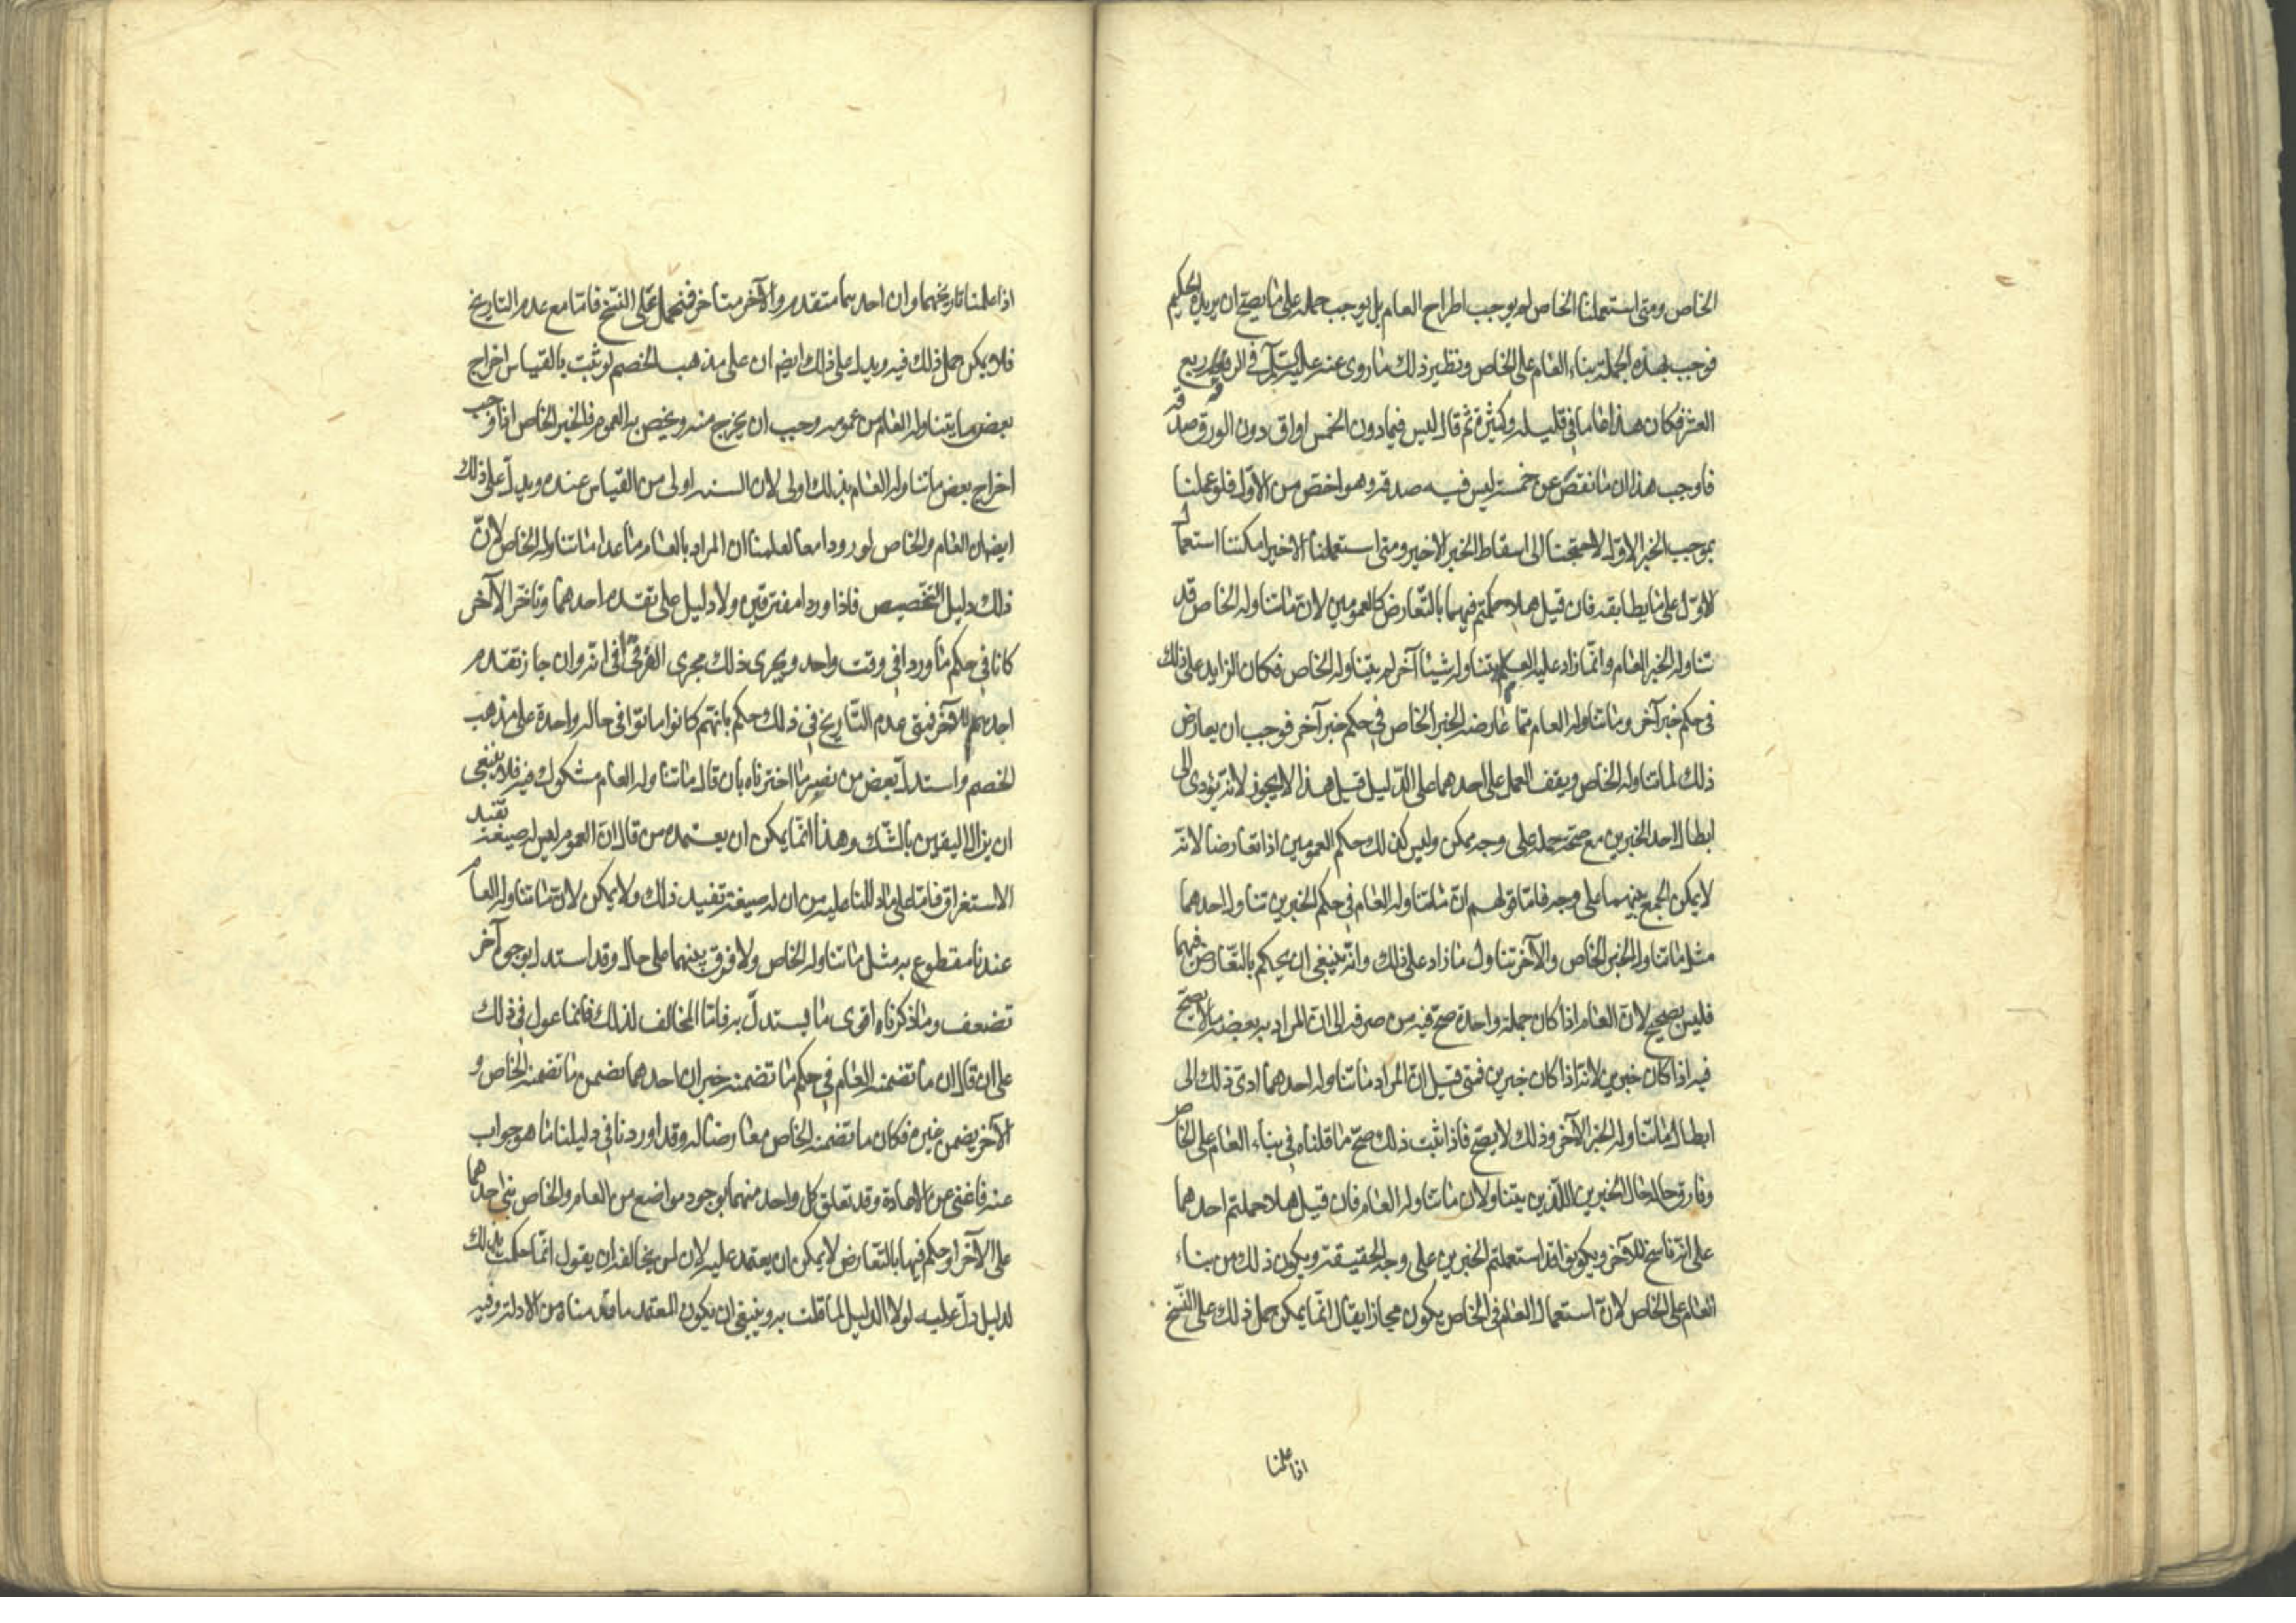 الخاص ومتى استعملنا الخاص لم يوجب اطراح العام بل يوجب حمله على ما يصح ان يريده الحكيم
فوجب بهذه الجملة بناء العام على الخاص ونظير ذلك ما روى عنه عليه السلم في الرقة ربع
العشر فكان هذا عاما في قليله وكثيره ثم قال ليس فيما دون الخمس اواق دون الورق صدقة
فاوجب هذا ان ما نقص عن خمسة ليس فيه صدقة وهو اخص من الاول فلو عملنا
بموجب الخبر الاول لاحتجنا الى اسقاط الخبر الاخير ومتى استعملنا الاخير امكننا استعمال
الاول على ما يطابقه فان قيل هلا حكمتم فيهما بالتعارض كالعمومين لان ما تناوله الخاص قد
تناوله الخبر العام وانما زاد عليه العام بتناوله شيئا آخر لم يتناوله الخاص فكان الزايد على ذلك
في حكم خبر آخر وما تناوله العام مما عارضه الخبر الخاص في حكم خبر آخر فوجب ان يعارض
ذلك لما تناوله الخاص ويقف العمل على احدهما على الدليل قيل هذا لا يجوز لانه يؤدى الى
ابطال احد الخبرين مع صحة حمله على وجه ممكن وليس كذلك حكم العمومين اذا تعارضا لانه
لا يمكن الجمع بينهما على وجه فاما قولهم ان ما تناوله العام في حكم الخبرين تناول احدهما
مثل ما تناوله الخبر الخاص والآخر تناول ما زاد على ذلك وانه ينبغي ان يحكم بالتعارض فيهما
فليس بصحيح لان العام اذا كان جملة واحدة صح فيه من صرفه الى ان المراد به بعضه ما لا يصح
فيه اذا كان خبرين لانه اذا كان خبرين فمتى قيل ان المراد ما تناوله احدهما ادى ذلك الى
ابطال ما تناوله الخبر الآخر وذلك لا يصح فاذا ثبت ذلك صح ما قلناه في بناء العام على الخاص
وفارق حاله حال الخبرين اللذين يتناولان ما تناوله العام فان قيل هلا حملتم احدهما
على انه ناسخ للآخر ويكونوا قد استعملتم الخبرين على وجه الحقيقة ويكون ذلك من بناء
العام على الخاص لان استعمال العام في الخاص يكون مجازا يقال انما يمكن حمل ذلك على النسخ
اذا علمنا
اذا علمنا تاريخهما وان احدهما متقدم والآخر متاخر فنحمل على النسخ فاما مع عدم التاريخ
فلا يمكن حمل ذلك فيه ويدل على ذلك ايضا ان على مذهب الخصم لو ثبت بالقياس اخراج
بعض ما يتناوله العام من عمومه وجب ان يخرج منه ويخص به العموم فالخبر الخاص اذا وجب
اخراج بعض ما تناوله العام بذلك اولى لان السنة اولى من القياس عنده ويدل على ذلك
ايضا ان العام والخاص لو وردا معا لعلمنا ان المراد بالعام ما عدا ما تناوله الخاص لان
ذلك دليل التخصيص فاذا وردا مفترقين ولا دليل على تقدم احدهما وتاخر الآخر
كانا في حكم ما وردا في وقت واحد ويجرى ذلك مجرى الغرقى في انه وان جاز تقدم
احدهم للآخر فمتى عدم التاريخ في ذلك حكم بانهم كانوا ماتوا في حالة واحدة على مذهب
الخصم واستدل بعض من نصر ما اخترناه بان قال ما تناوله العام مشكوك فيه فلا ينبغى
ان يزال اليقين بالشك وهذا انما يمكن ان يعتمده من قال ان العموم ليس له صيغة تفيد
الاستغراق فاما على ما دللنا عليه من ان له صيغة تفيد ذلك ولا يمكن لان ما تناوله العام
عندنا مقطوع به مثل ما تناوله الخاص ولا فرق بينهما على حال وقد استدل بوجوه آخر
تضعف وما ذكرناه اقوى ما يستدل به فاما المخالف لذلك فانما عول في ذلك
على ان قال ان ما تضمنه العام في حكم ما تضمنه خبران احدهما تضمن ما تضمنه الخاص و
الآخر يضمن غيره فكان ما تضمنه الخاص معارضا له وقد اوردنا في دليلنا ما هو جواب
عنه فاغنى عن الاعادة وقد تعلق كل واحد منهما بوجود مواضع من العام والخاص بنى احدهما
على الآخر او حكم فيها بالتعارض لا يمكن ان يعتمد عليه لان لمن يخالفه ان يقول انما حكمت بذلك
لدليل دل عليه لولا الدليل لما قلت به وينبغى ان يكون المعتمد ما قدمناه من الادلة وفيه